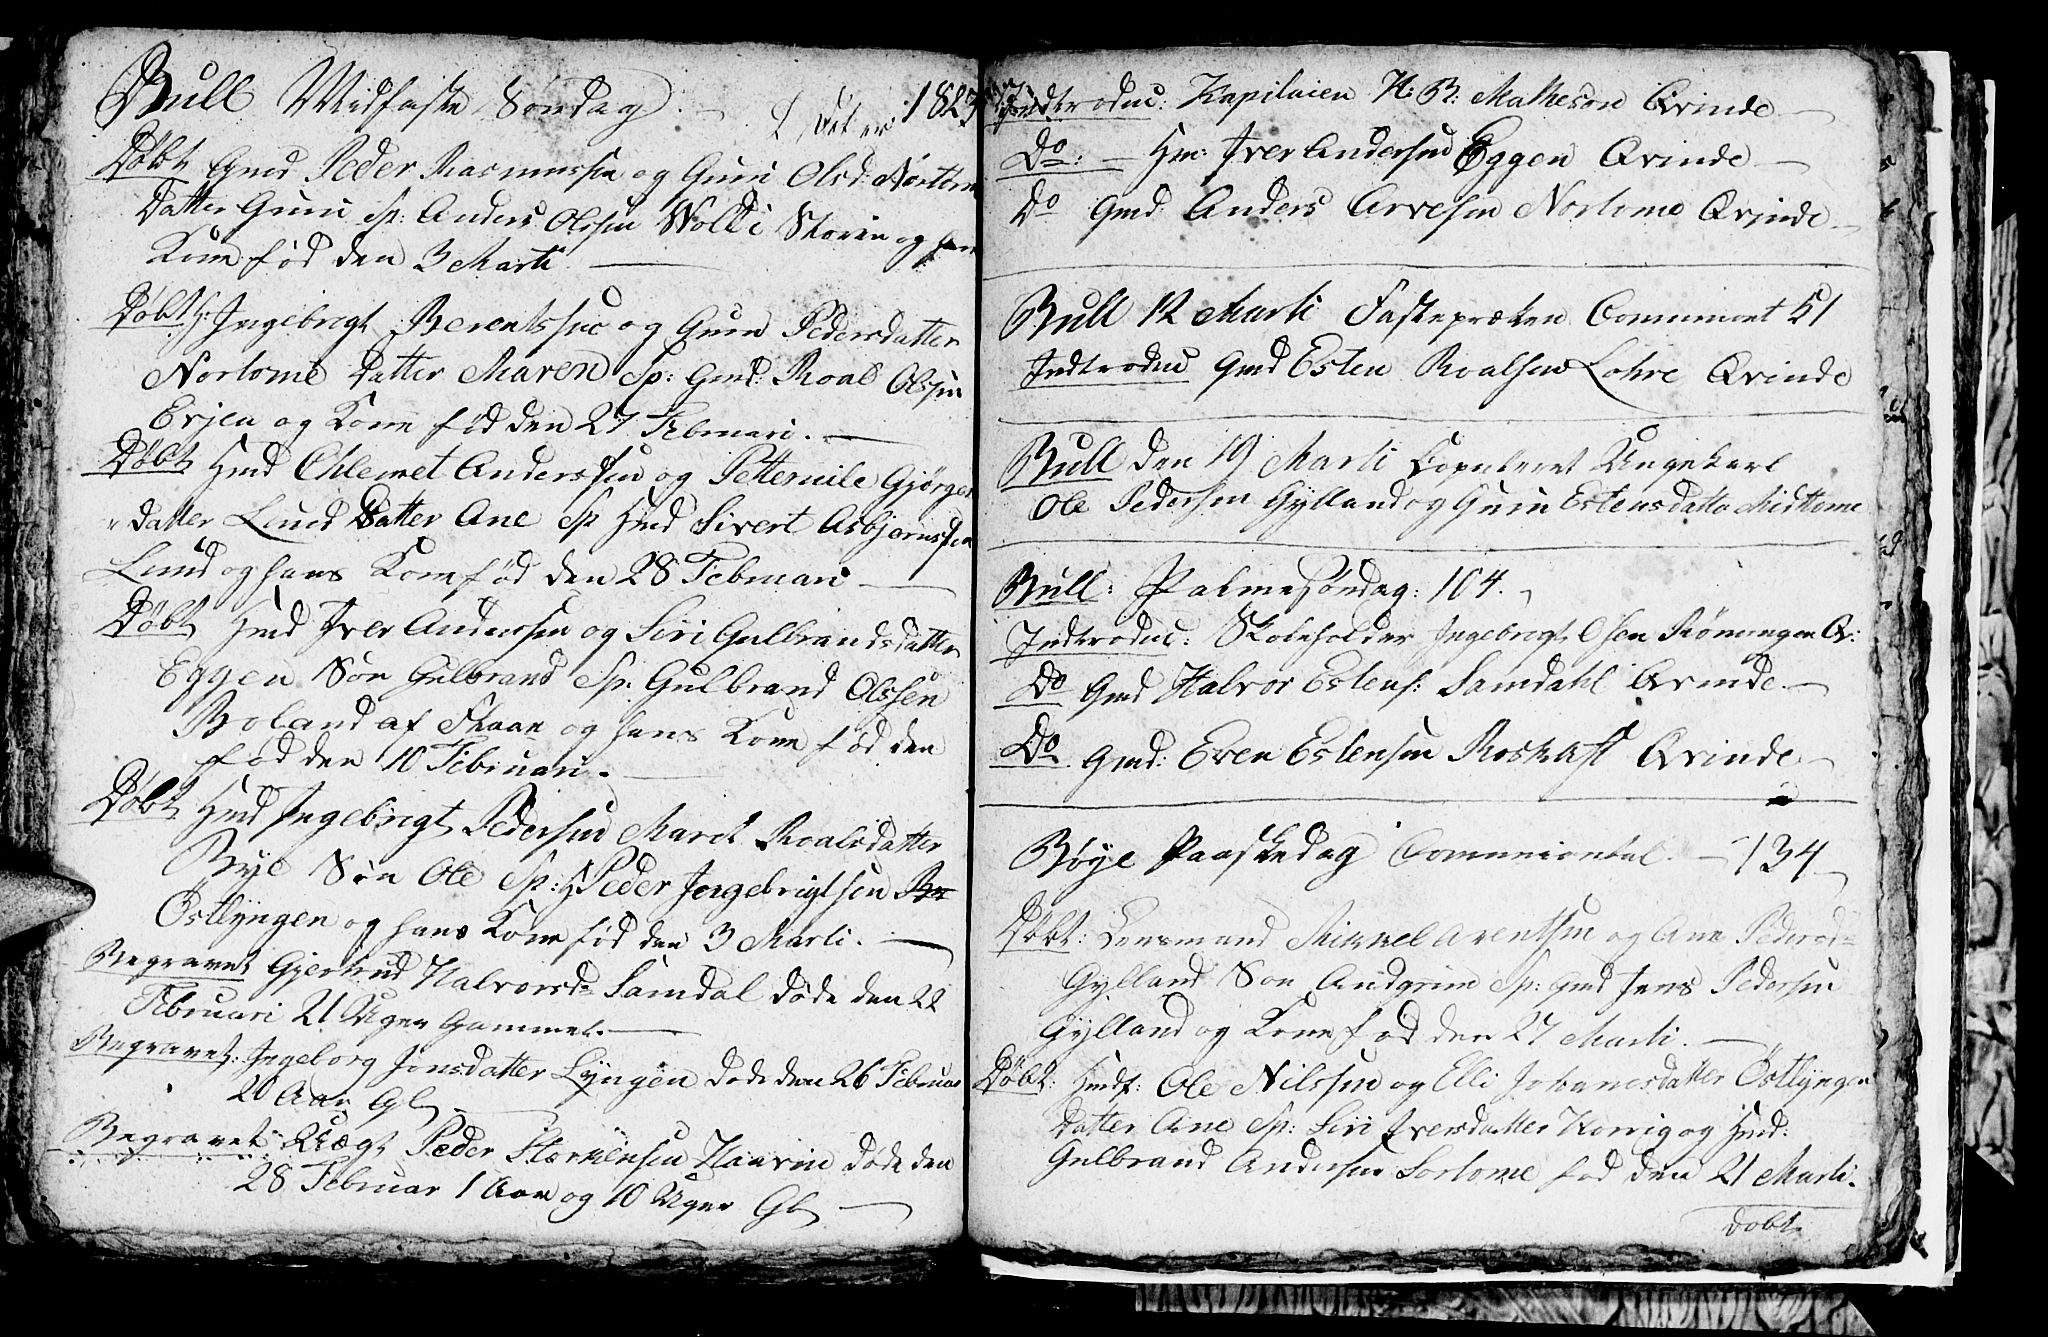 Bull Midfaste Søndag. 1823
Døbt Gmd Peder Rasmussen og Guri Olsd: Nortome
Datter Guru Sp: Anders Olssen Wold i Storen og hans
Kone fød den 3 Marti
Døbt H: Ingebrigt Berentssen og Guru Pedersdatter
Nortome Datter Maren Sp: Gmd: Roal Olssen
Evjen og Kone fød den 27 Februari.
Døbt Hmd Ehlemet Anderssen og Petternile Gjørgen
datter Lund Datter Ane Sp Hmd Sivert Asbjørnssen
Lund og hans Kone fød den 28 Februari
Døbt Hmd Iver Andersen og Siri Gulbrandsdatter
Eggen Søn Gulbrand Sp: Gulbrand Olssen
Boland af Skaan og hans Kone fød den
fød den 10 Februari.
Døbt Hmd Ingebrigt Pedersen Marit Roalsdatter
Bye Søn Ole Sp: H Peder Ingebrigtsen
Østlyngen og hans Kone fød den 3 Marti.
Begravet Gjertrud Halvorsd: Samdal døde den 22
Februari 21 Uger Gammel.
Begravet: Ingeborg Jonsdatter Lyngen døde den 26 Februar
20 Aar Gl
Begravet Peder Størkersen Haavin døde den
28 Februar 1 Aar og 10 Uger Gl
Indtroduc: Kapilaien H: B: Matheson Qvinde
Do: Hm: Iver Andersen Eggen Qvinde
Do Gmd Anders Arvesen Nortome Qvinde
Bull 12 Marti Fastepræken Comuniont 51
Indtroduc Gmd Esten Roalsen Lohre Qvinde
Bull den 19 Marti Copuleret Ungekarl
Ole Pedersen Gylland og Guru Estensdatter Midttome
Bull: Palmesøndag: 104.
Indtroduc: Skoleholder Ingebrigt Olsen Rønningen Qv:
Do Gmd Halvor Estens: Samdahl Qvinde
Do Gmd: Even Estensen Roskaft Qvinde
Bøye Paaskedag Comuniontal. 134
Døbt: Lensmand Mikkel Arentsen og Ane Pedersd
Gylland Søn Andgrim Sp: Gmd Jens Pedersen
Gylland og Kone fød den 27 Marti.
Døbt: Hmds: Ole Nilssen og Elli Johanesdatter Østlyngen
Datter Ane Sp: Siri Iversdatter Korrig og Hmd:
Gulbrand Andersen Sortome fød den 21 Marti.
døbt